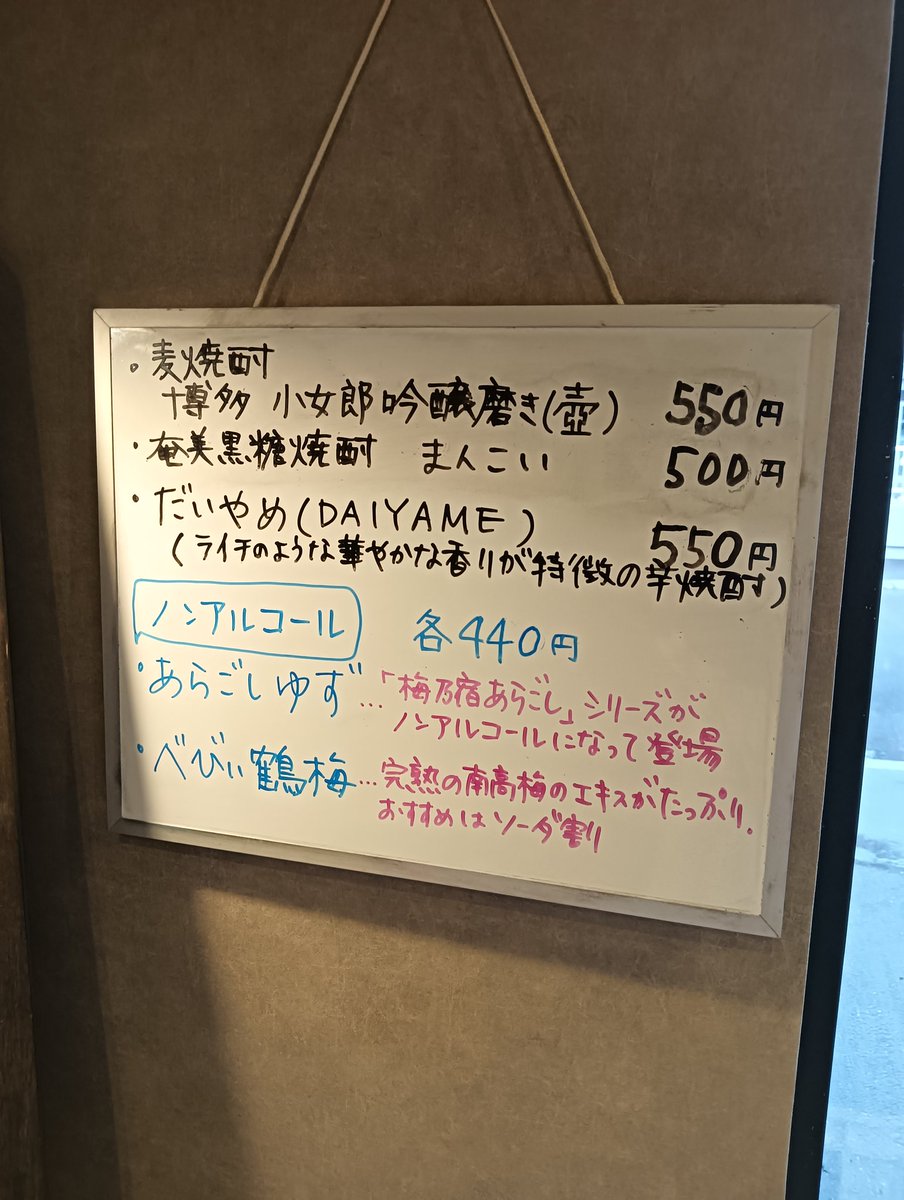 ・麦焼酎
博多 小女郎 吟醸磨き(壺) 550円
・奄美黒糖焼酎 まんこい 500円
・だいやめ(DAIYAME) 550円
(ライチのような華やかな香りが特徴の芋焼酎)
ノンアルコール 各440円
・あらごしゆず…「梅乃宿あらごし」シリーズが
ノンアルコールになって登場
・べびぃ鶴梅…完熟の南高梅のエキスがたっぷり。
おすすめはソーダ割り